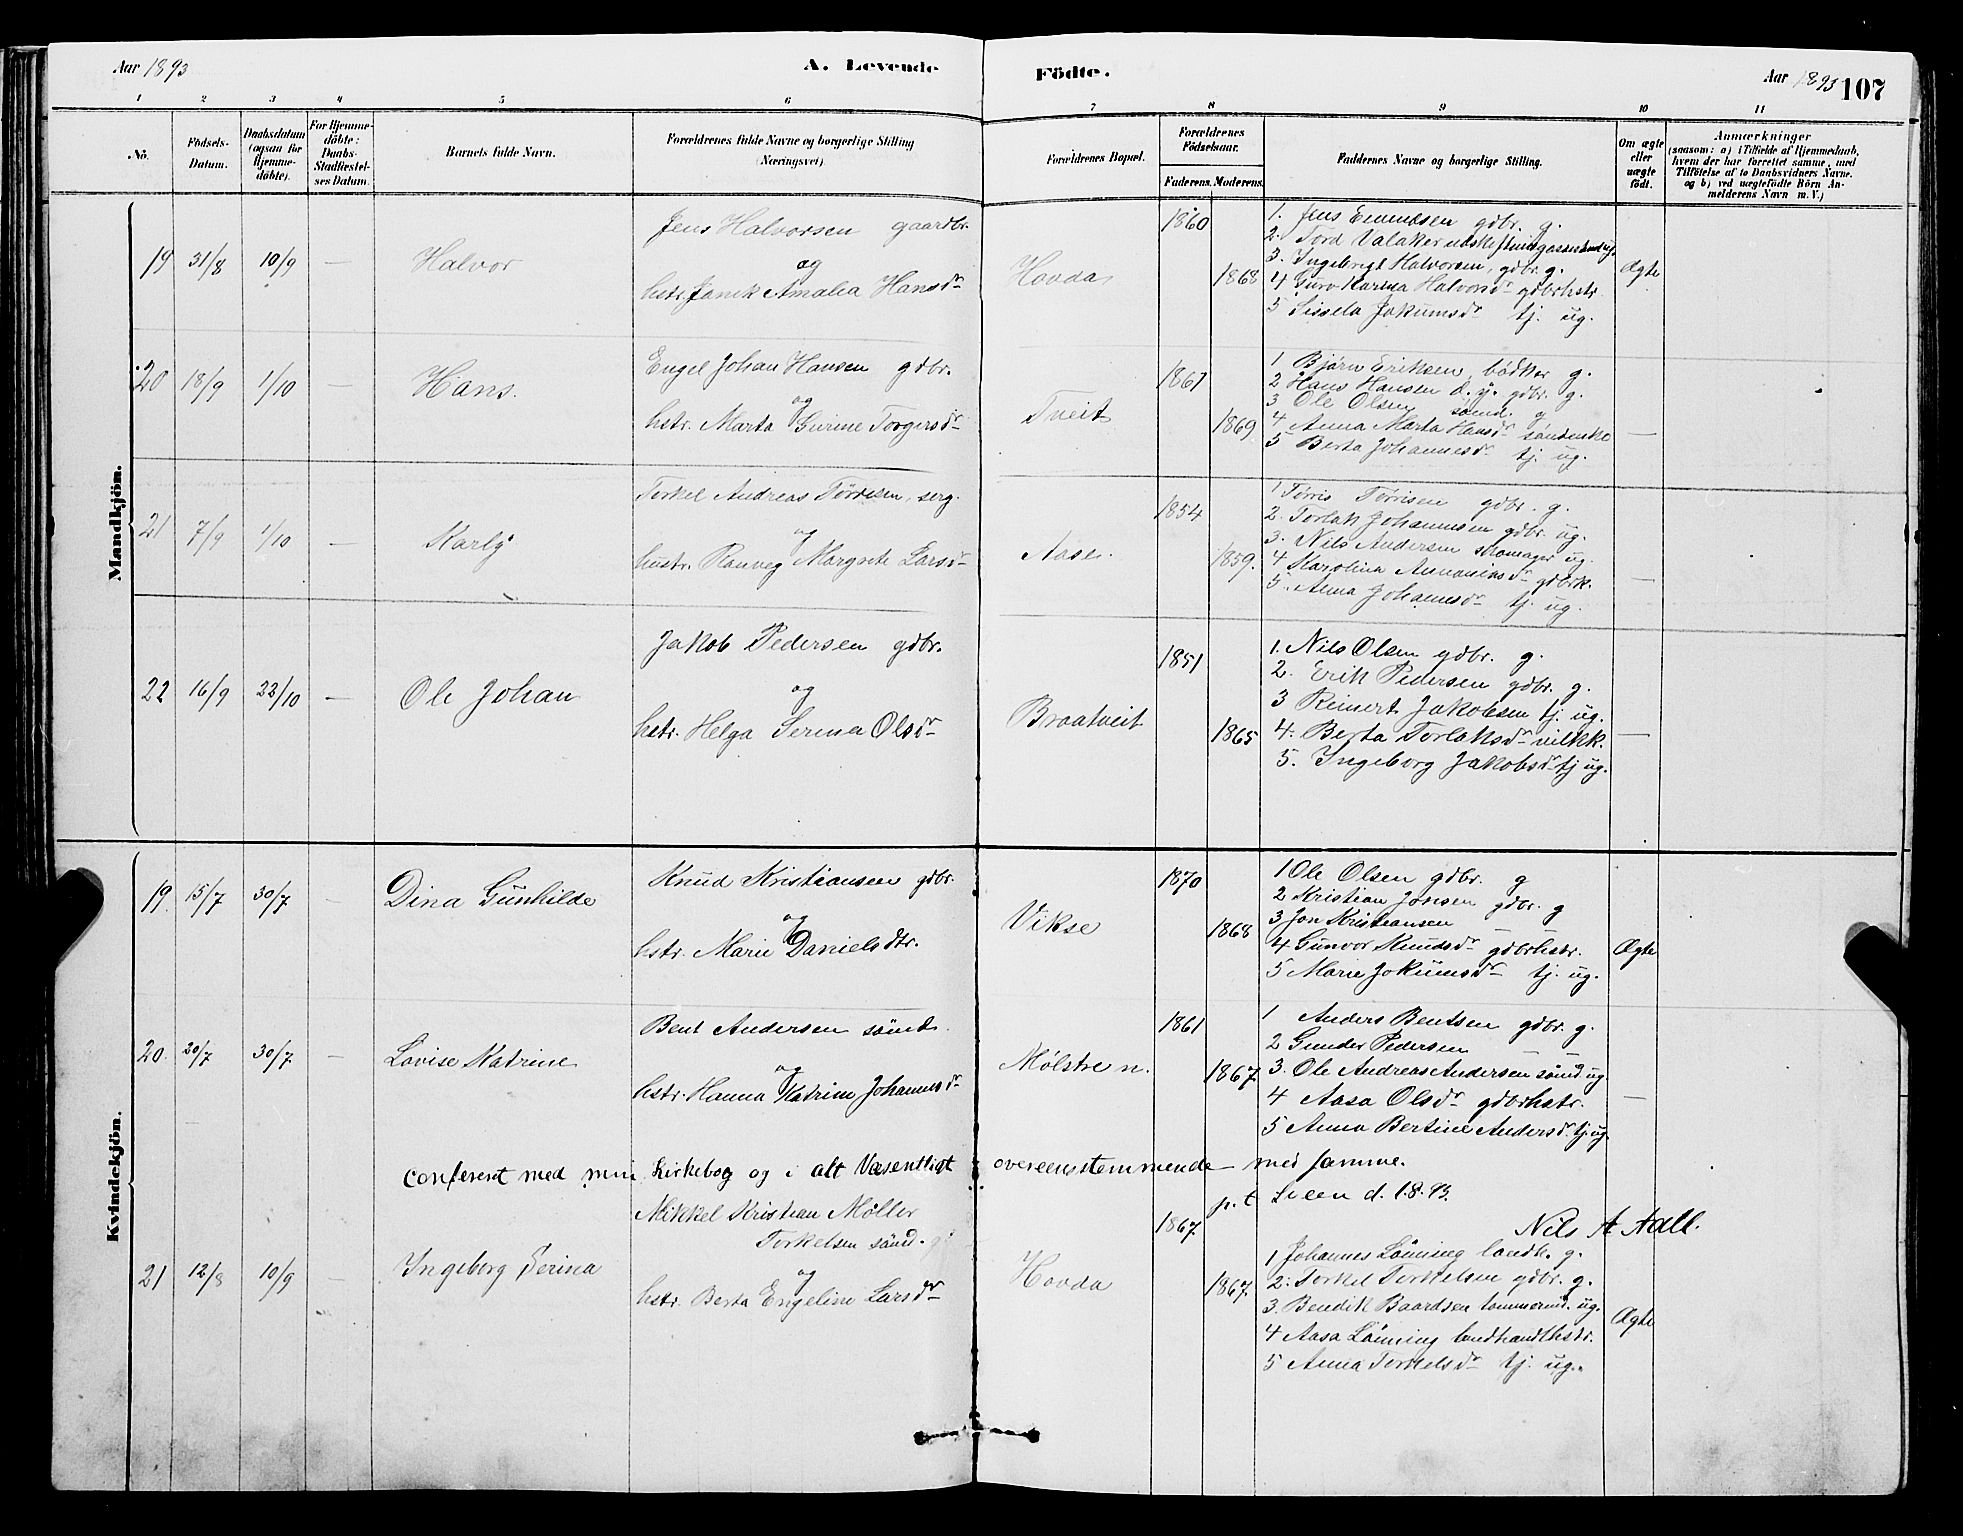 Aar 1893
A. Levende Födte.
Aar 1893 107
1 2 3 4 5 6 7 8 9 10 11
No.
Födsels-Datum.
Daabsdatum (ogsaa for Hjemmedöbte).
For Hjemmedöbte: Daabs-Stadfæstelses Datum.
Barnets fulde Navn.
Forældrenes fulde Navne og borgerlige Stilling (Næringsvei).
Forældrenes Bopæl.
Forældrenes Födselsaar.
Faderens. Moderens.
Faddernes Navne og borgerlige Stilling.
Om ægte eller uægte födt.
Anmærkninger
(saasom: a) i Tilfælde af Hjemmedaab,
hvem der har forrettet samme, med
Tilföielse af to Daabsvidners Navne.
og b) ved uægtefödte Börn An-
melderens Navn m. V.)
Mandkjön.
19 31/8 10/9 — Halvor
Jens Halvorsen gaardbr.
og
hstr. Janik Amalia Hansdr
Hovda
1860
1868
1. Jens Enundsen gdbr. g.
2. Tord Valaker
3. Ingebrigt Halvorsen, gdbr. g.
4 Guro Karina Halvorsdr gdbrhstr.
5 Sissela Jokumsdr tj. ug.
Ægte
20 18/9 1/10 — Hans.
Engel Johan Hansen gdbr.
og
hstr. Marta Gurine Torgersdr
Tveit
1867
1869
1 Bjørn Eriksen, bødker g.
2 Hans Hansen d. y. gdbr. g.
3 Ole Olsen sømd. g
4 Anna Marta Hansdr
5 Berta Johannesdr tj. ug.
—
21 7/9 1/10 — Karly
Torkel Andreas Tørresen, serg.
og
hustr. Ranveg Margrete Larsdr
Aase.
1854
1859.
1 Tørris Tørrisen gdbr. g.
2. Torlak Johannesen gdbr. ug.
3. Nils Andersen skomager ug.
4 Karolina Ananiasdr gdbrk.
5. Anna Johannesdr tj. ug.
—
22 16/9 22/10 — Ole Johan
Jakob Pedersen gdbr.
og
hstr. Helga Serina Olsdr
Braatveit
1851
1865
1. Nils Olsen gdbr. g.
2. Erik Pedersen gdbr. g.
3 Reinert Jakobsen tj. ug.
4. Berta Torlaksdr
5. Ingeborg Jakobsdr tj ug.
—
Kvindekjön.
19. 15/7 30/7 — Dina Gunhilde
Knud Kristiansen gdbr.
og
hstr. Marie Danielsdtr.
Vikse
1870
1868
1 Ole Olsen gdbr. g
2 Kristian Jonsen gdbr. g
3 Jon Kristiansen — —
4 Gunvor Knudsdr gdbrhstr.
5 Marie Jokumsdr tj. ug.
Ægte
20. 20/7 30/7 — Lovise Katrine
Bent Andersen sömd.
og
hstr. Hanna Katrine Johannesdr
Mølstre n.
1861
1867.
1 Anders Bentsen gdbr. g.
2 Gunder Pedersen — —
3. Ole Andreas Andersen sömd. ug.
4 Aasa Olsdr gdbrhstr.
5 Anna Bertine Andersdr tj. ug.
—
conferert med min Kirkebog og i alt Væsentligt overeensstemmende med samme.
p. t Lieen d. 1.8.93.
Nils A Aall.
21 12/8 10/9 — Ingeborg Serina
Mikkel Kristian Møller
Torkelsen sømd. g
og
hstr. Berta Engeline Larsdr
Hovda
1867.
1867.
1 Johannes Lönning landh. g.
2. Torkel Torkelsen gdbr. g.
3. Bendik Baardsen tømmerm. ug.
4 Aasa Lönning landhandlhstr.
5 Anna Torkelsdr tj. ug.
Ægte